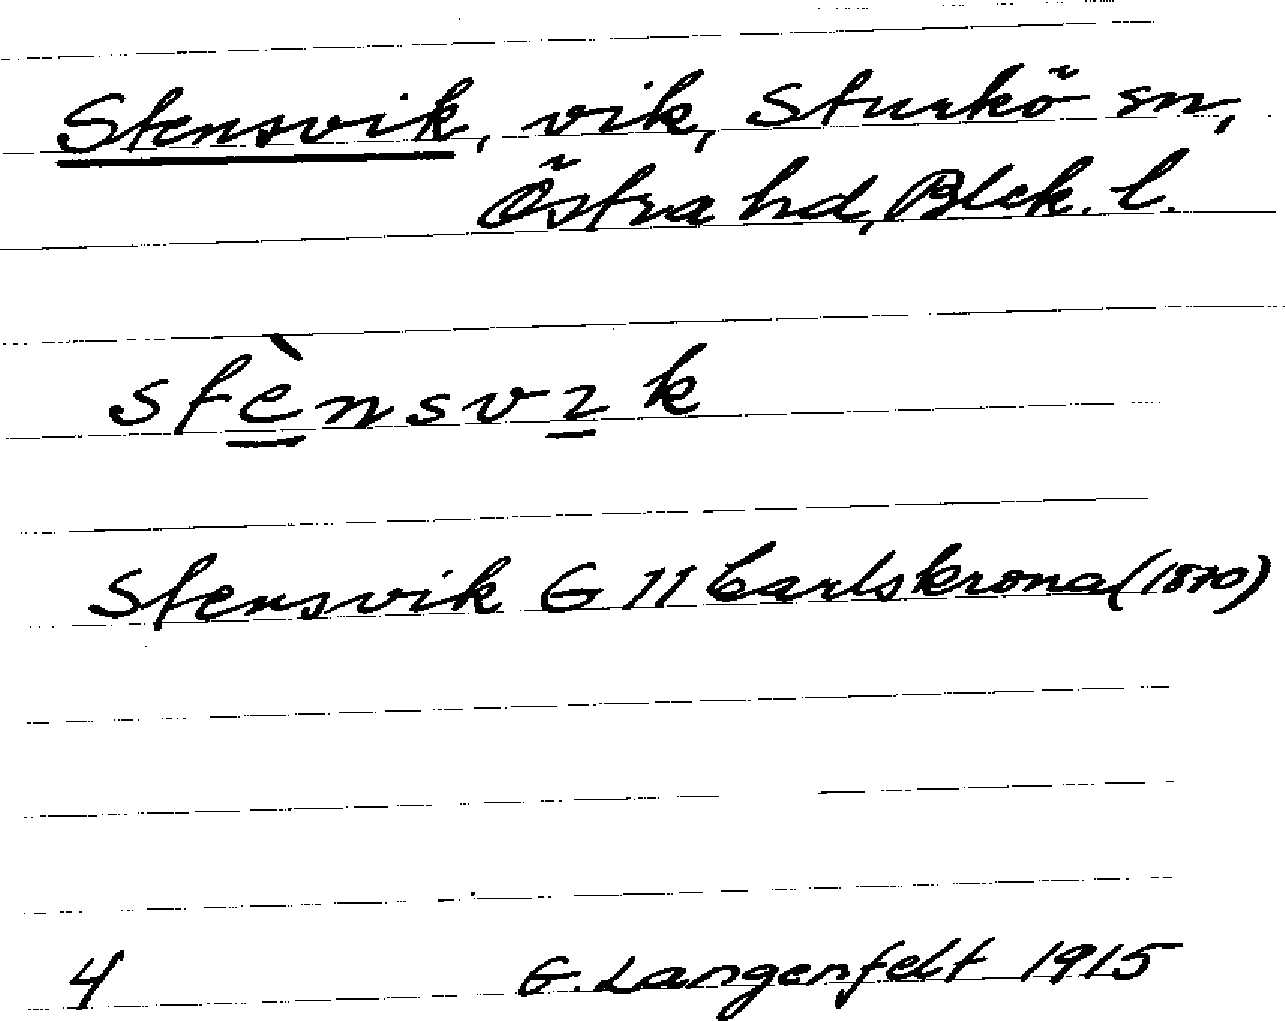 Stensvik, vik, Sturkö sn,
Östra hd, Blek. l.
stènsvɪk
Stensvik G 11 Carlskrona (1870)
4 G. Langenfelt 1915